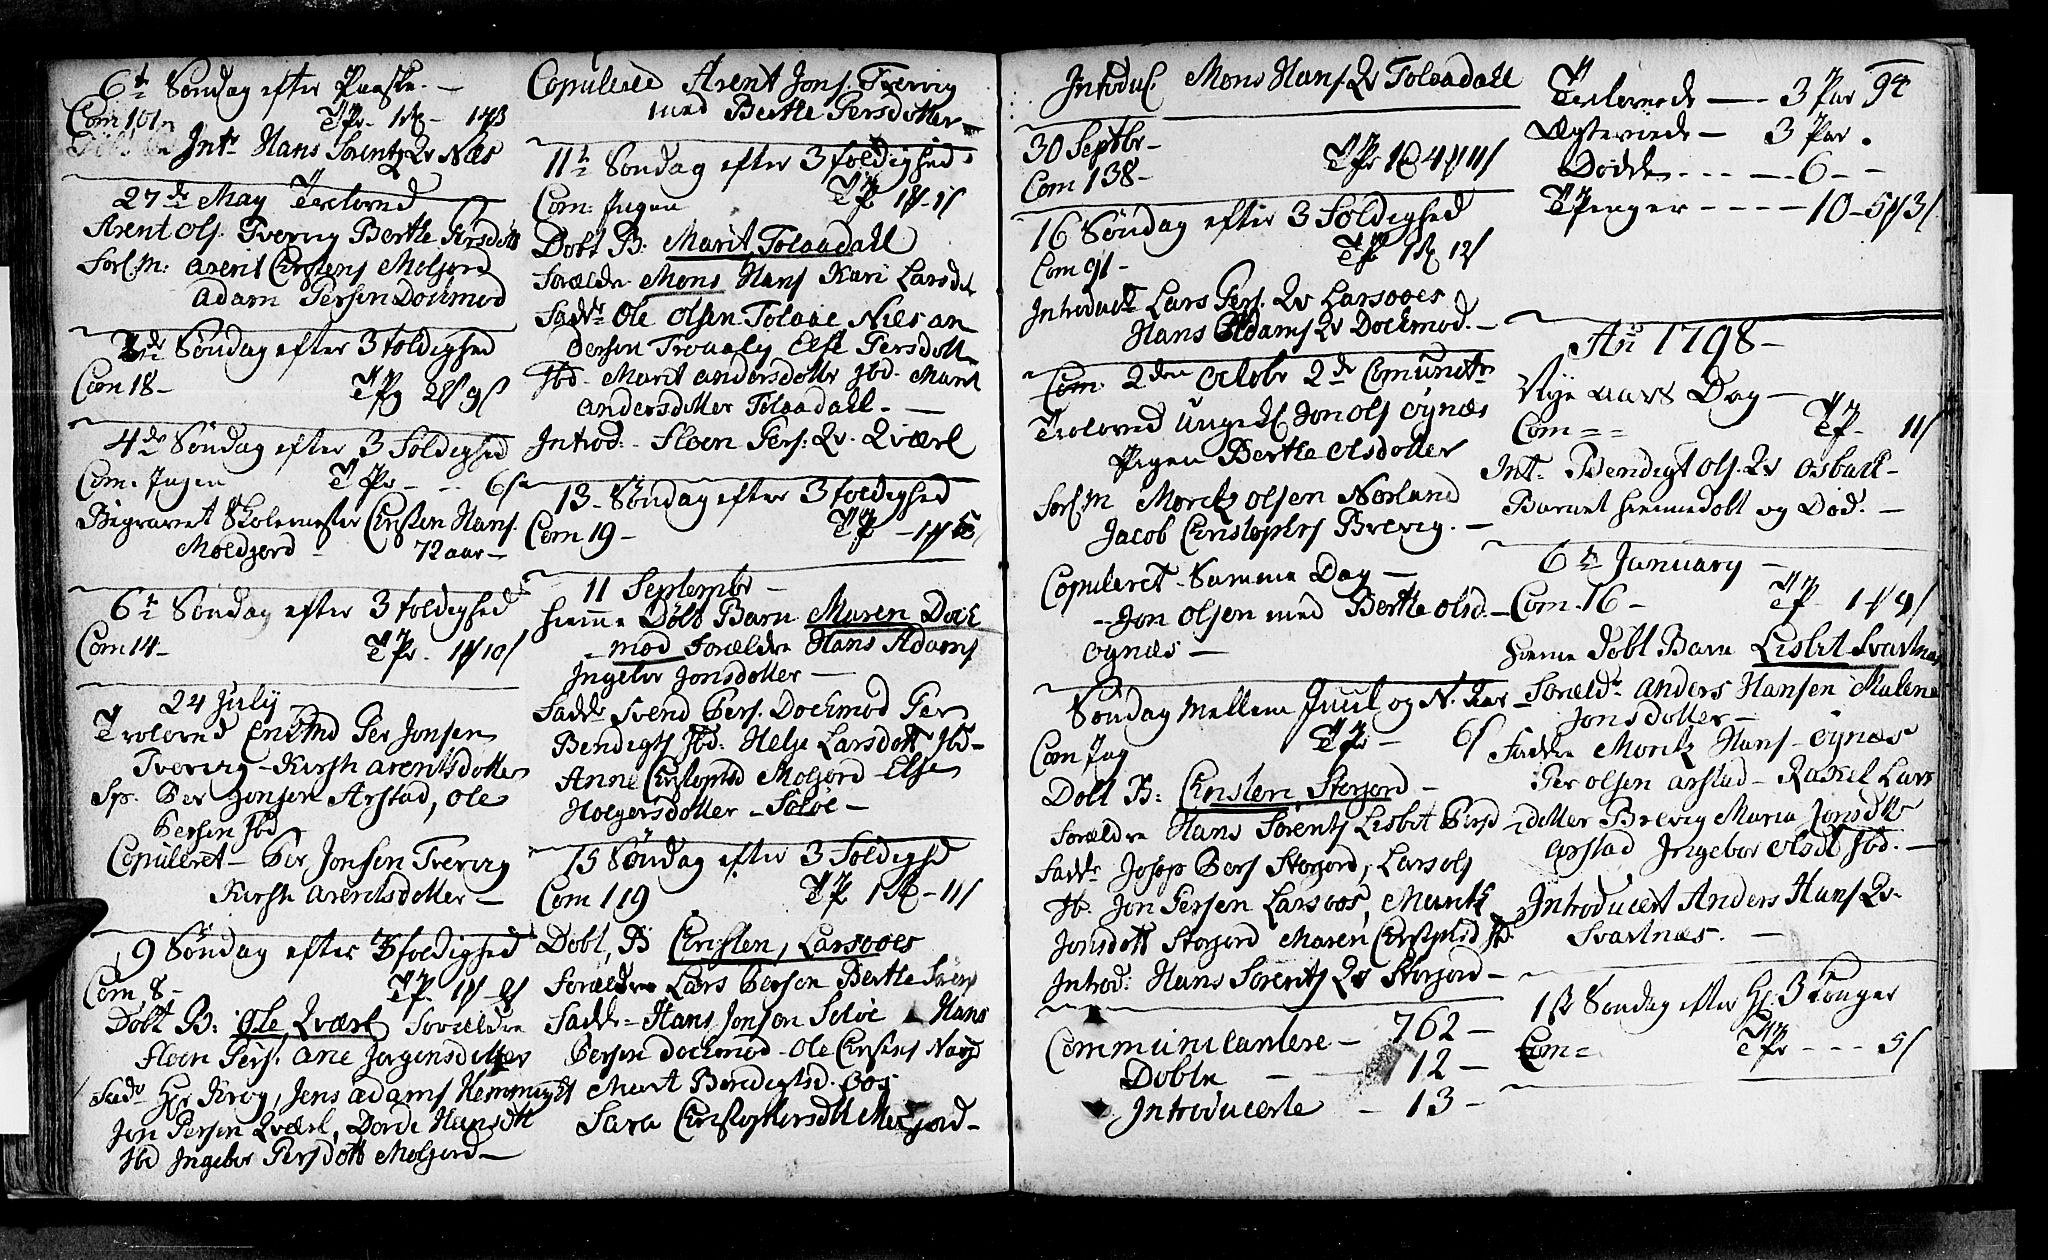 6te Søndag efter Paaske. —
Com 101 TPr. 1rk — 1 4β
Int. Hans Sorentz Qv Næs
27de May Trolovd
Arent Ols. Tvervig Berthe Persdott
Forl. M: Arent Christens Molgord
Adam Persen Dochmod
2de Søndag efter 3foldighed
Com 18 — TPg 2 9s
4de Søndag efter 3 Foldighed
Com. Ingen TPr — — 6s
Begravet Skolemester Christen Hans.
Moldgord — 72 aar —
6te Søndag efter 3foldighed
Com 14 — TPr. 1 10s
24 July
Trolovd Enkmd Per Jonsen
Tvervig — Kirsh Arentsdotter
Sp. Per Jonsen Arstad, Ole
Persen Jbd
Copuleret — Per Jonsen Tvervig
Kirsh Arentsdotter —
9 Søndag efter 3foldighed
Com 8 — TP. 1 8s
Døbt B: Ole Qværl Forældre
Sloen Pers: Ane Jorgensdotter
Fadr Hr Krog, Jens Adams Hemmingst
Jon Persen Qværl, Dorde Hansdtt
Jbd Ingebor Persdott Molgord —
Copulered Arent Jons. Tvervig
med Berthe Persdotter —
11te Søndag efter 3foldighed
Com: Ingen TP 1 1s
Døbt B. Marit Tolaadall
Forældre Mons Hans Kari Larsd
Fadr Ole Olsen Tolaae Niels An
dersen Trovaly Else Persdott
Jbd. Marit Andersdottr Jbd. Marit
Andersdotter Tolaadall. —
Introd: Sloen Pers: Qv. Qværl
13 — Søndag efter 3foldighed
Com 19 — TP — 1
11 Septembr —
Hieme Døbt Barn Maren Doch
mod Forældre Hans Adams
Ingebor Jonsdotter —
Fadr Svend Pers. Dochmod Per
Bendigts Jbd: Helje Larsdott Jbd —
Anne Christophsd Moljord — Else
Holgersdotter — Soløe —
15 Søndag efter 3foldighd
Com 119 TP 1rk — 11s
Døbt, B Christen, Larsooes
Forældre Lars Persen Berthe Svens
Fadr — Hans Jonsen Soløe Hans
Persen Dochmod — Ole Christens
Marit Bendigtsd. Oos
Sara Christophersdtt Molgord —
Introduc. Mons Hans Qv Tolaadall
30 Septbr —
Com 138 — TPr 1rk 4 11s
16 Søndag efter 3 Foldighed
Com 91 — TP 1rk 12s
Introduct Lars Pers. Qv Larsooes
Hans Adams Qv Dochmod. —
Com. 2den Octobr 2de Comunictr
Trolovd Ungekl Jon Ols Oynæs
Pigen Berthe Olsdotter
Forl. M Moritz Olsen Norland
Jacob Christophrs Brevig. —
Copuleret Samme Dag —
— Jon Olsen med Berthe Olsd. —
Oynæs —
Søndag mellem Juul og N. Aar —
Com Ing TPr — 6s
Døbt B: Christen, Storjord —
Forældre Hans Sorentz Lisbet Persd —
Fadr Josep Pers Storjord, Lars Ols
Jb. Jon Persen Larsoos, Marith
Jonsdott Storjord Maren Christophsd Jbd
Introd: Hans Sorentz Qv Storjord —
Communicantere — 762 —
Døbte — 12 —
Introducerte — 13 —
94
Trolovede — — 3 Par
Ægteviede — 3 Par.
Døde — — — 6 — —
TPenger — — — — 10 — 5 13s
Año 1798 —
Nye Aars Dag —
Com = = TP. 11s
Int. Bendigt Ols. Qv Osbak —
Barnet hiemmedøbt og Død. —
6te January —
Com. 16 — TP. 1 9s
Hieme Døbt Barn Lisbet Svartnæs
Forældr Anders Hansen Malene
Jonsdotter —
Faddre Moritz Hans — Oynæs
Per Olsen Arstad — Rakel Lars
dotter Brevig Maria Jonsdtr
Arstad Ingebor Olsdt Jbd. —
Introducert Anders Hans Qv.
Svartnæs. —
1ste Søndag efter H. 3 Konger
Com = TPr — — — 5s